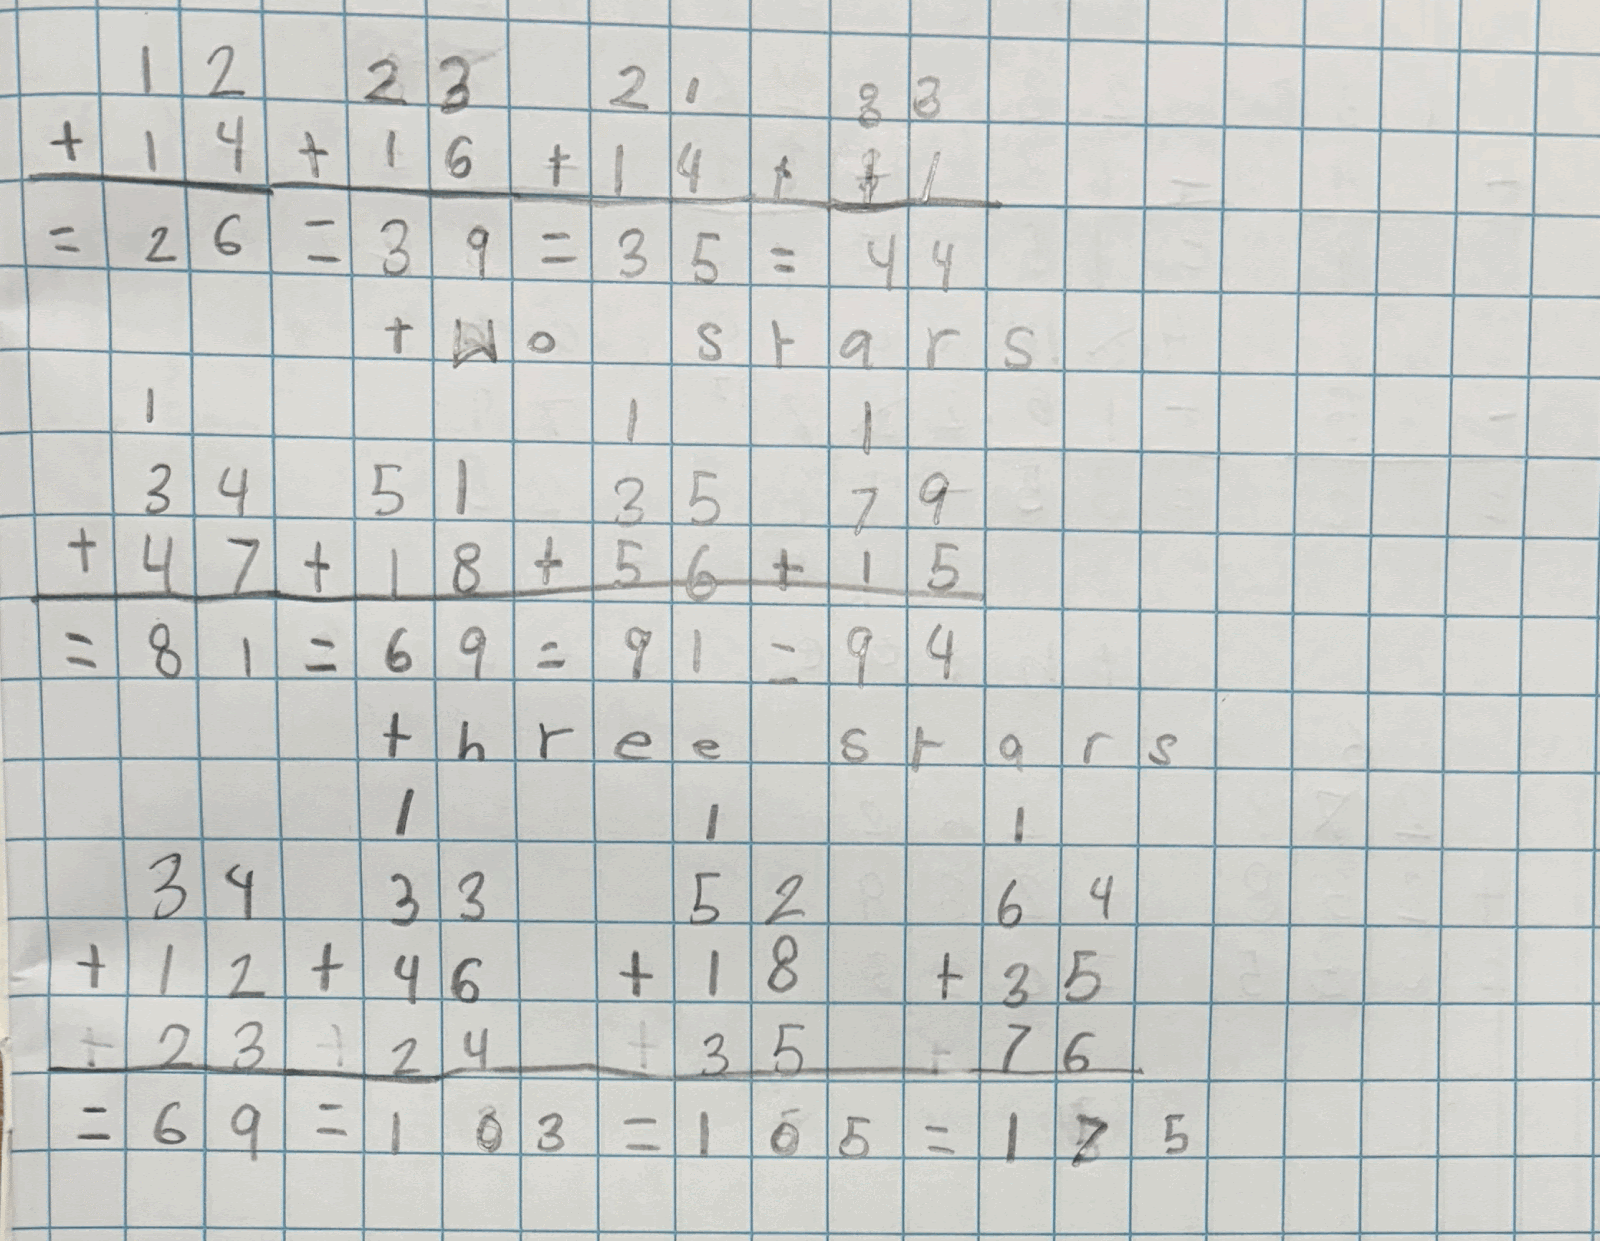 12 23 21 33
+ 14 + 16 + 14 + 11
= 26 = 39 = 35 = 44
two stars
1 1 1
34 51 35 79
+ 47 + 18 + 56 + 15
= 81 = 69 = 91 = 94
three stars
1 1 1
34 33 52 64
+ 12 + 46 + 18 + 35
+ 23 + 24 + 35 + 76
= 69 = 103 = 105 = 175